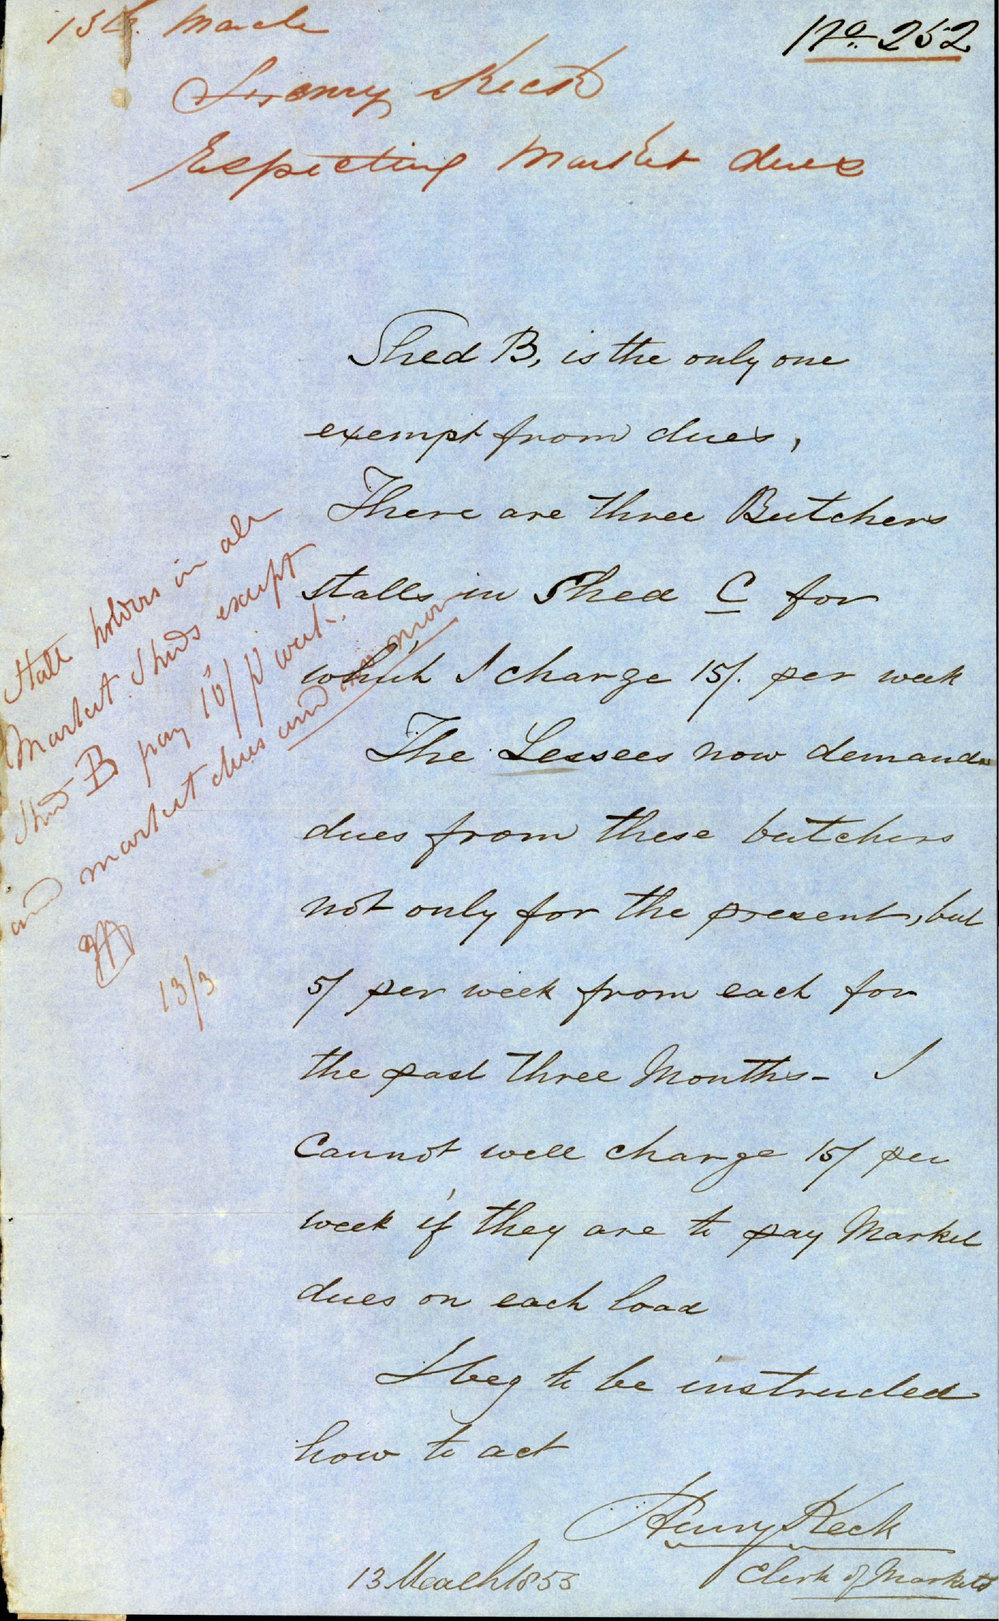 13th. March
No. 252
Henry Keck
Respecting Market dues
Shed B, is the only one
exempt from dues,
There are three Butchers
stalls in Shed C for
which I charge 15/. per week
The Lessees now demand
dues from these butchers
not only for the present, but
5/ per week from each for
the past three Months - I
cannot well charge 15/ per
week if they are to pay Market
dues on each load
I beg to be instructed
how to act
Henry Keck
Clerk of Markets
13 March 1853
Stall holders in all
Market Sheds except
Shed B pay 10/ p week.
and market dues and no more
13/3